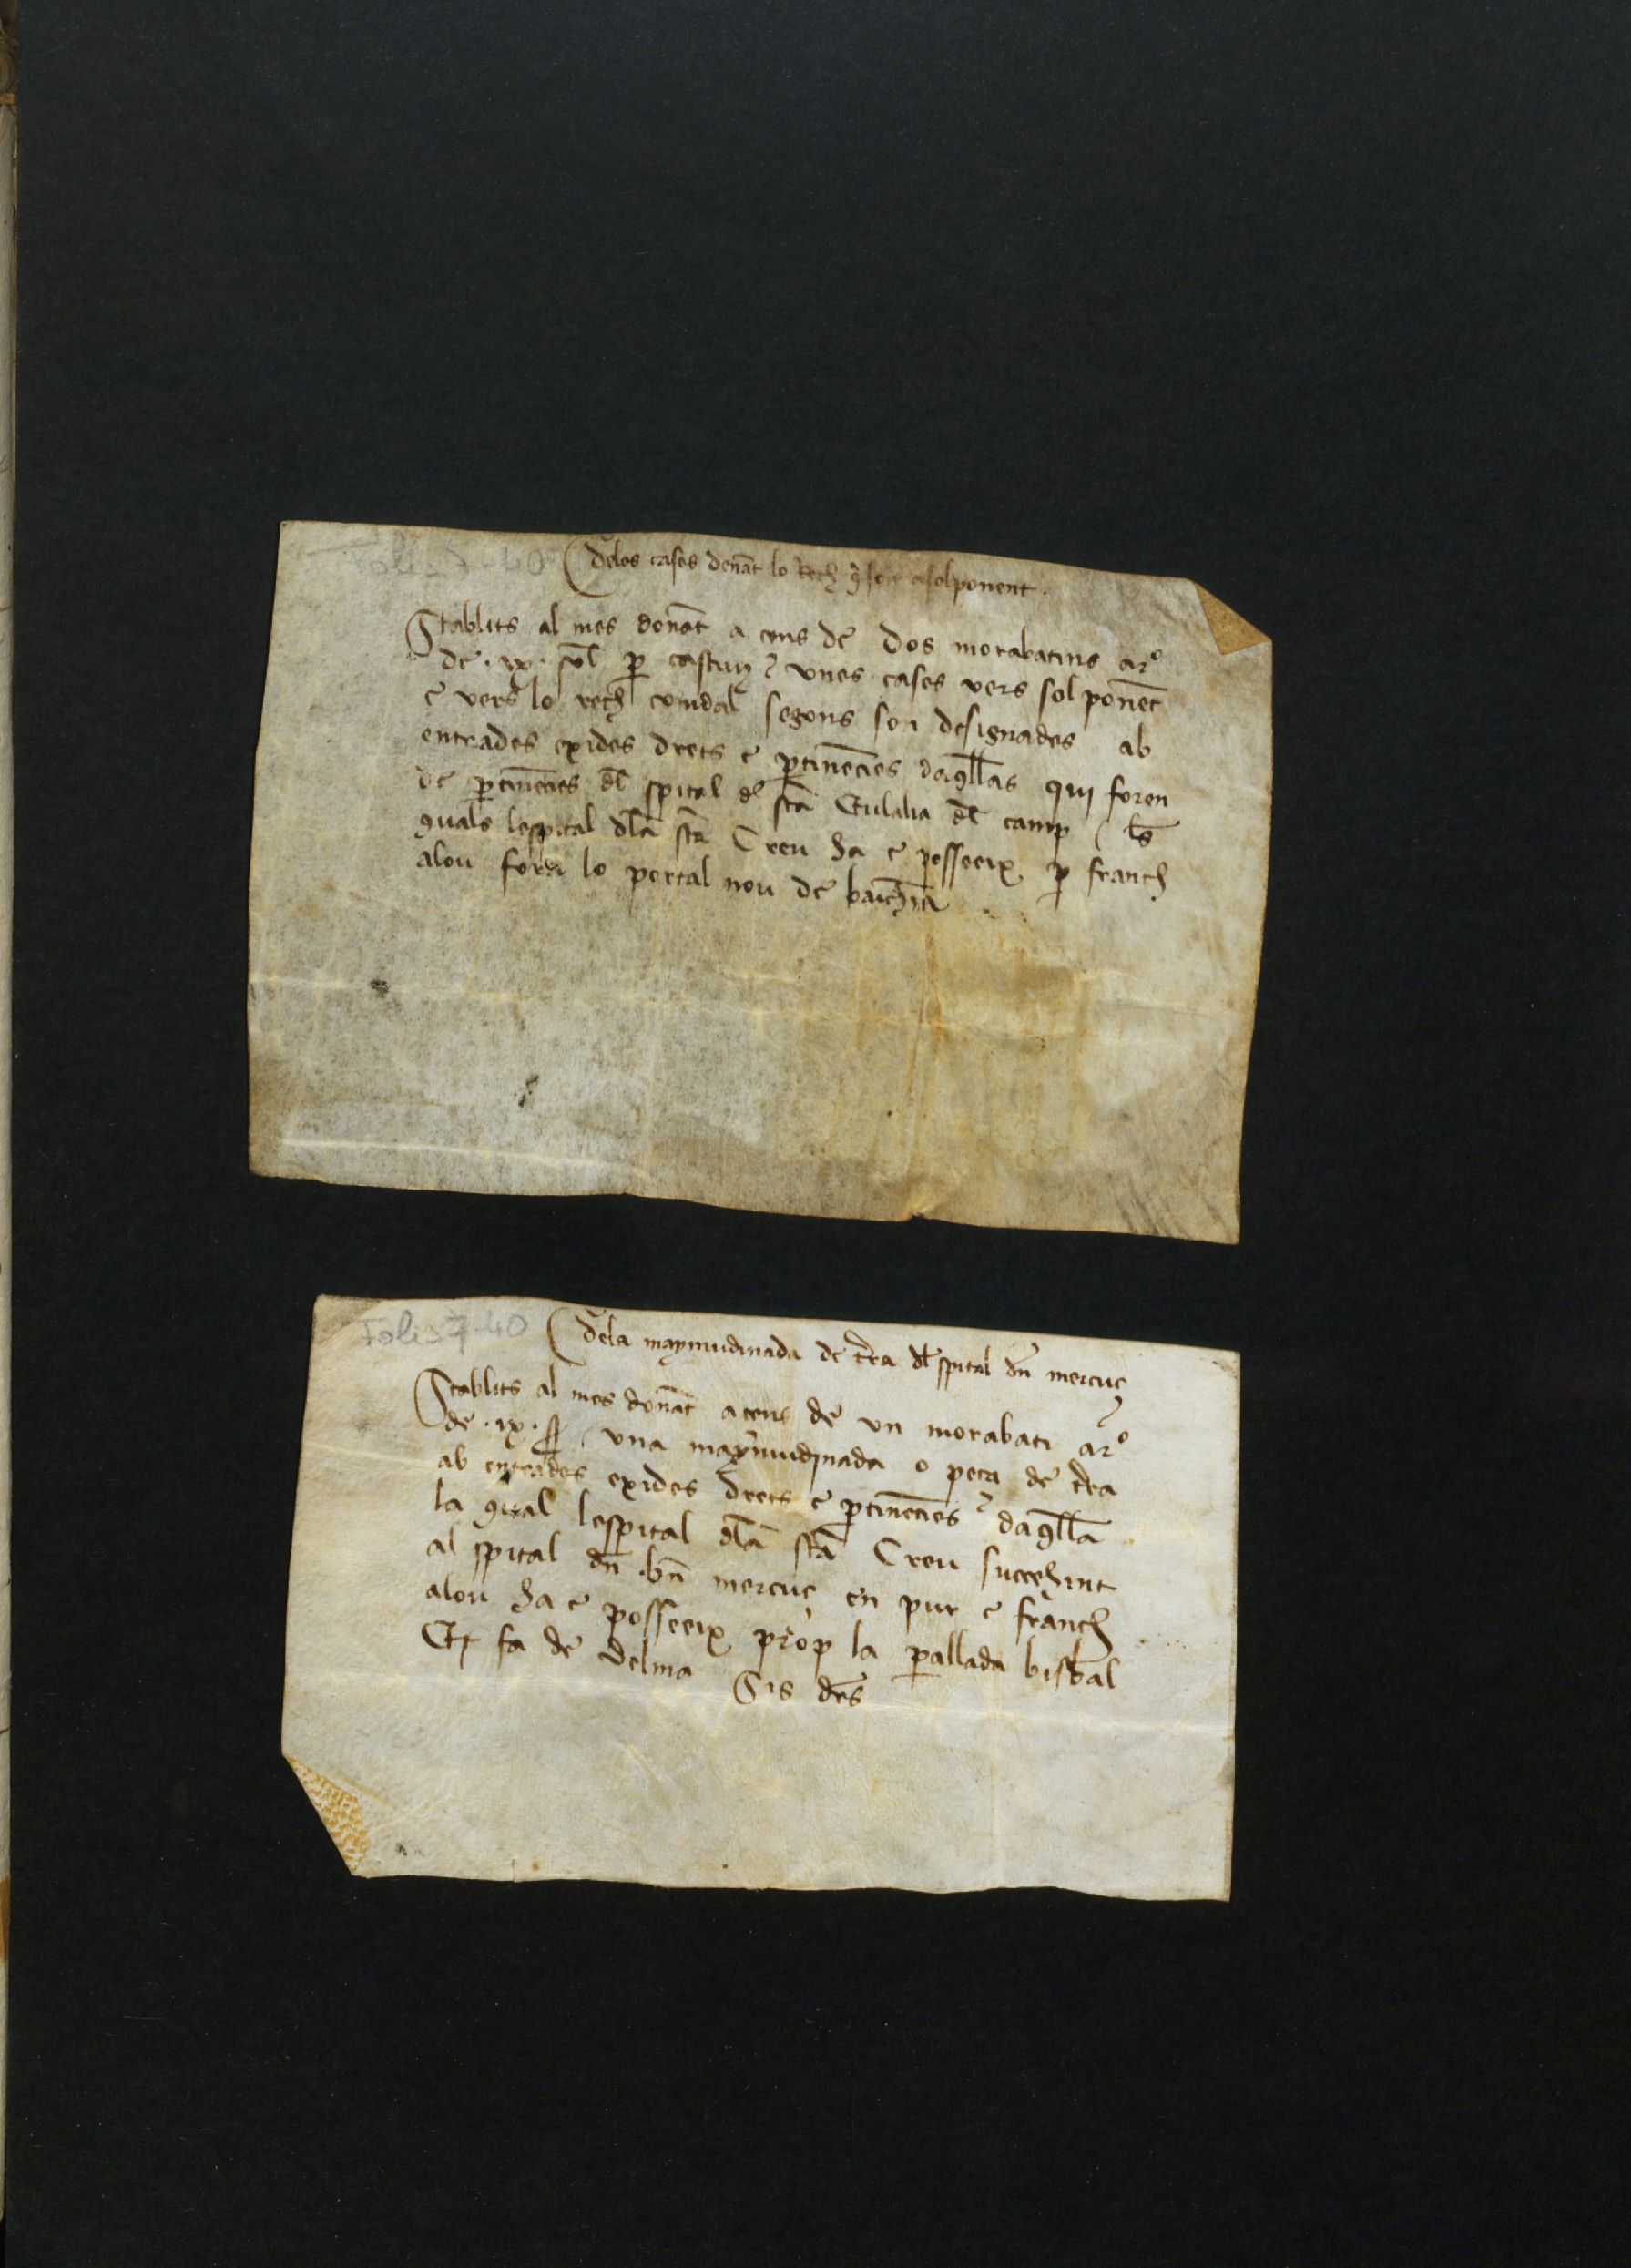 Foli 7-40
Deles cases denāt lo Rech q̄ son a solponent.
Stablits al mes donāt a cens de dos morabatins ar°
de .ix. sol̄ ꝑ cascun vnes cases vers sol ponēt
e vers lo rech comdal segons son designades ab
entrades exides drets e ꝑtinēcies daq̄lles qui foren
de ꝑtinēcies dl̄ spital d̄ sc̄ta Eulalia dl̄ camp Les
quals lespital dl̄a sc̄ta Creu ha e posseeix ꝑ franch
alou fora lo portal nou de barch̄na
Foli 7-40
Dela maymudinada de tr̄a dl̄ spital dn̄ mercuç
Stablits al mes donāt a cens de vn morabati ar°
de .ix. s̄ vna maymudinada o peça de tr̄a
ab entrades exides drets e ꝑtinēcies daq̄lla
la qual lespital dl̄a sc̄ta Creu succehint
al spital dn̄ .bn̄ mercuç en pur e franch
alou ha e posseeix prop la ꝑallada bisbal
Et fa de delma Sis drs̄